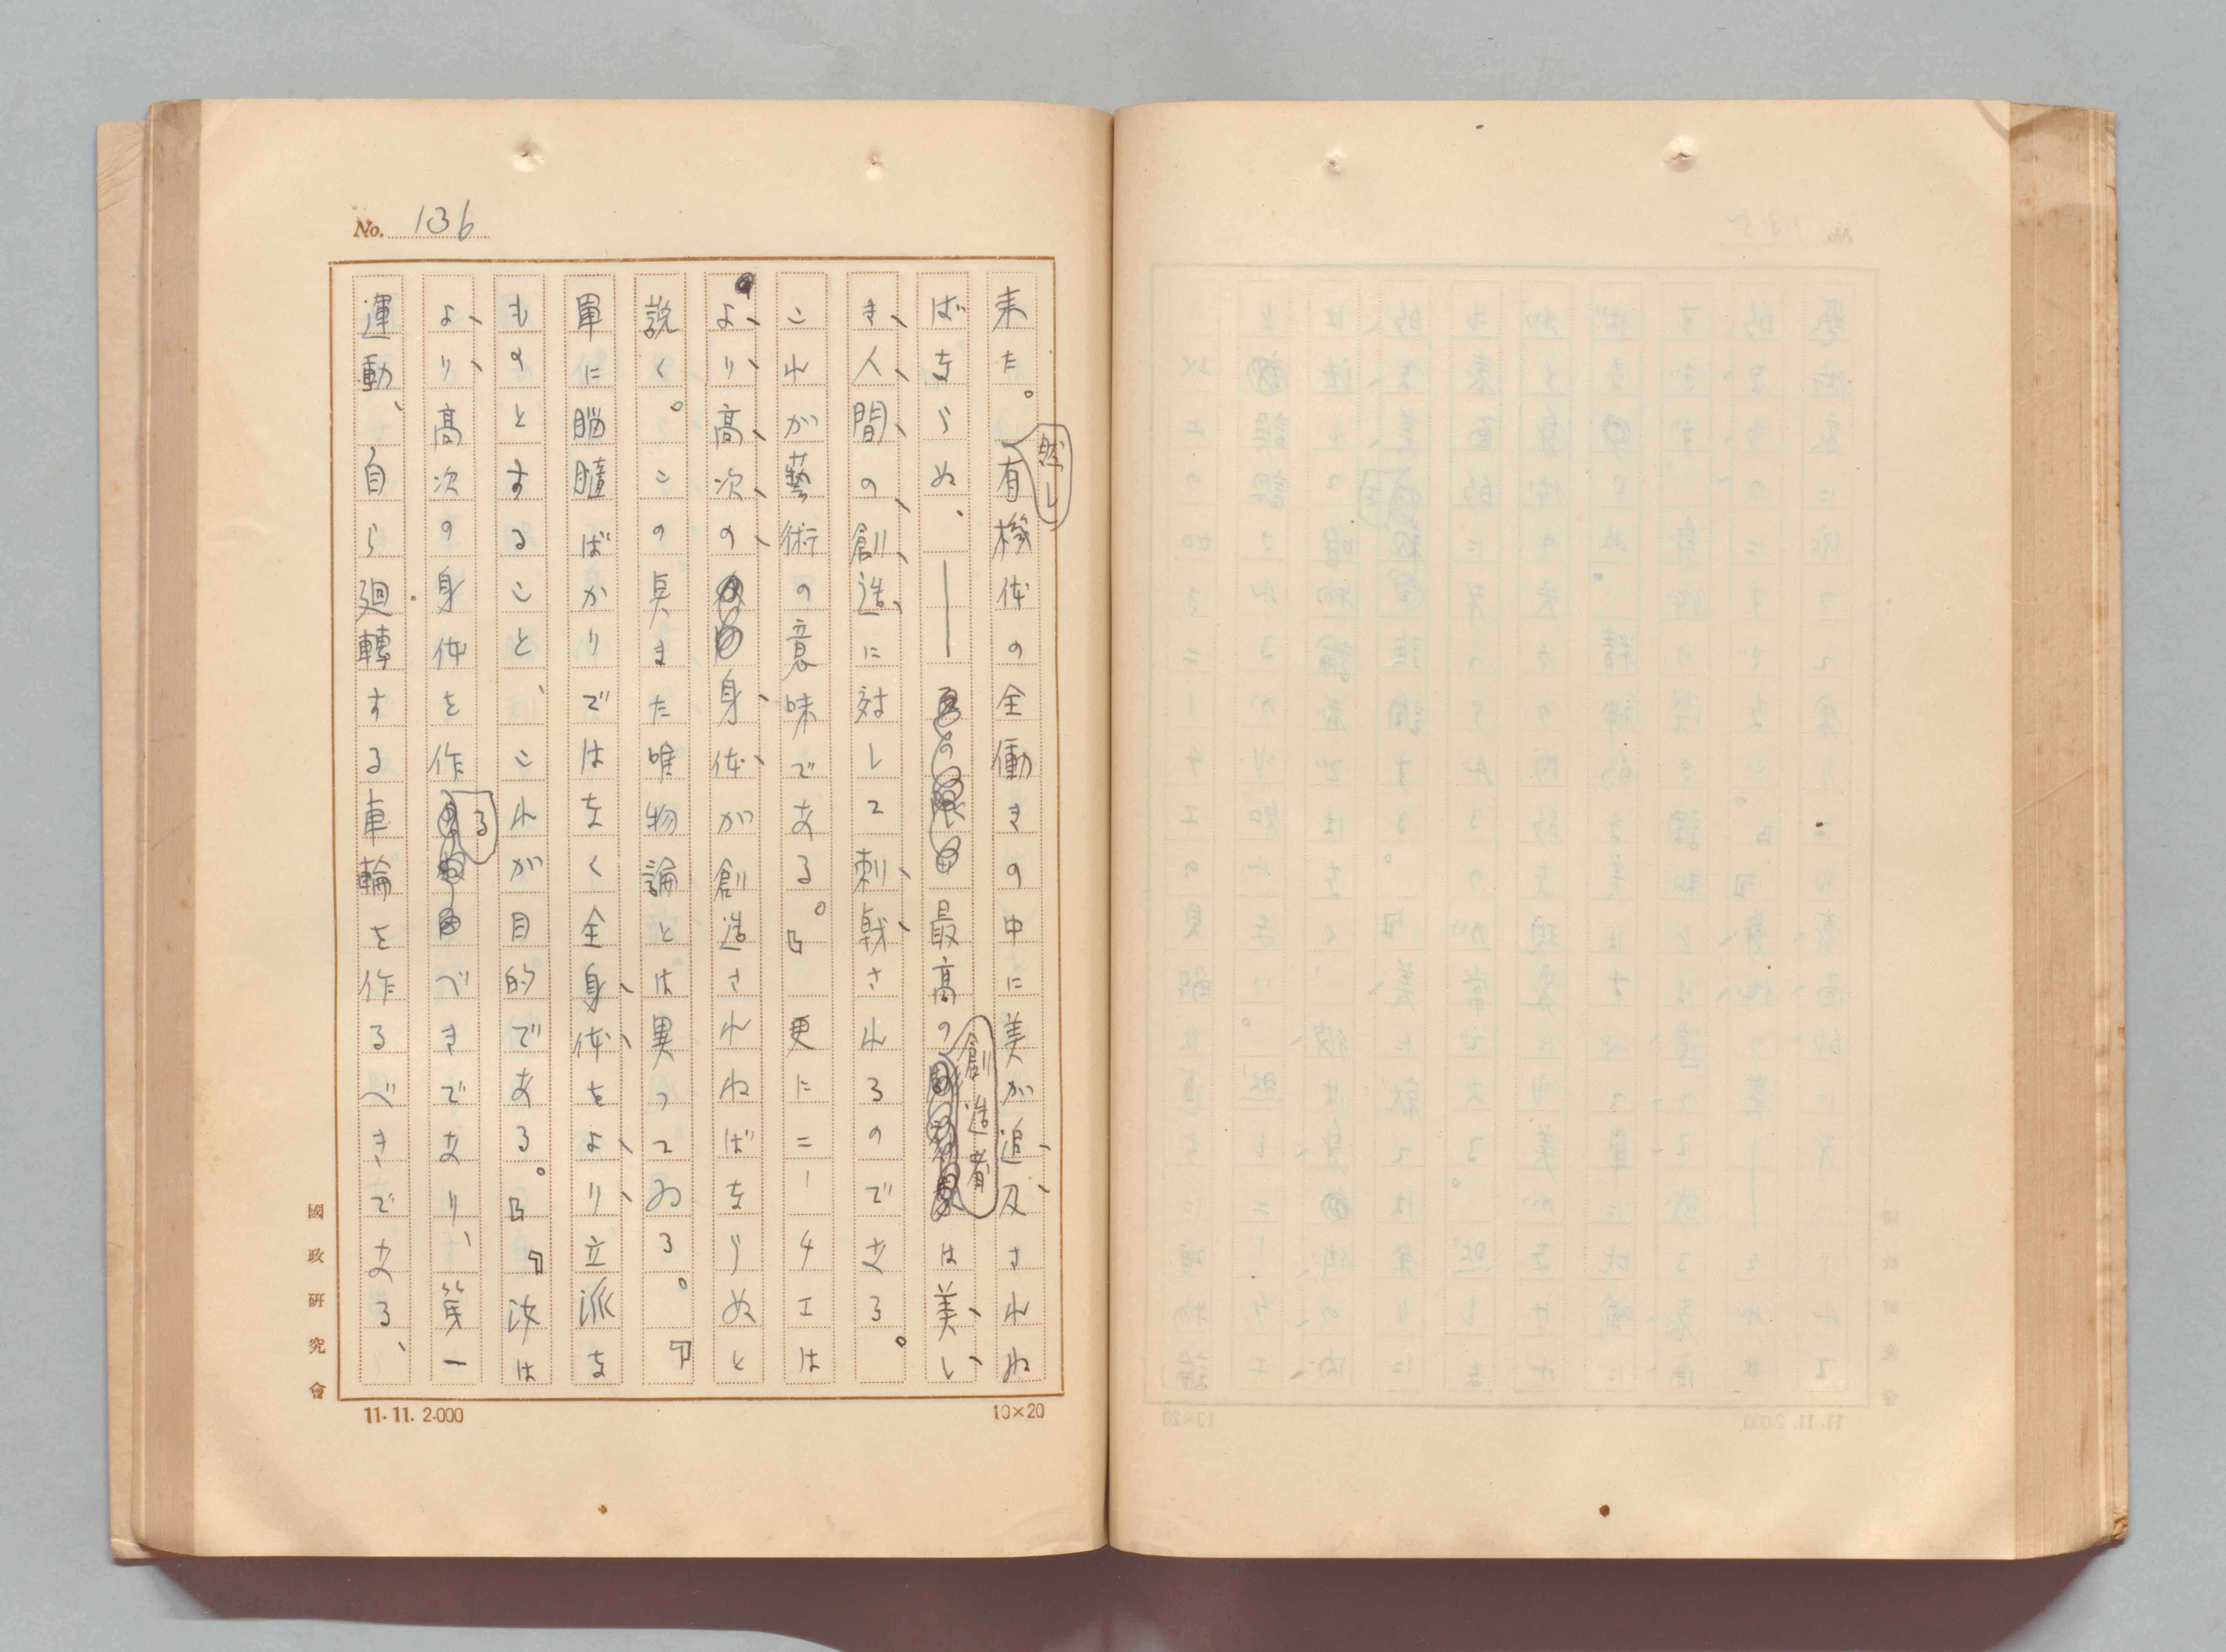 No. 136
来た。然し有機体の全働きの中に美が追及されね
ばならぬ、――最高の創造者は美し
き人間の創造に対して刺戟されるのである。
これが藝術の意味である。』更にニーチエは
より高次の身体が創造されねばならぬと
説く。この点また唯物論とは異つてゐる。『
単に脳髄ばかりではなく全身体をより立派な
ものとすること、これが目的である。』『汝は
より高次の身体を作るべきであり、第一
運動、自ら廻轉する車輪を作るべきである、
國政研究會
11.11.2.000
10×20